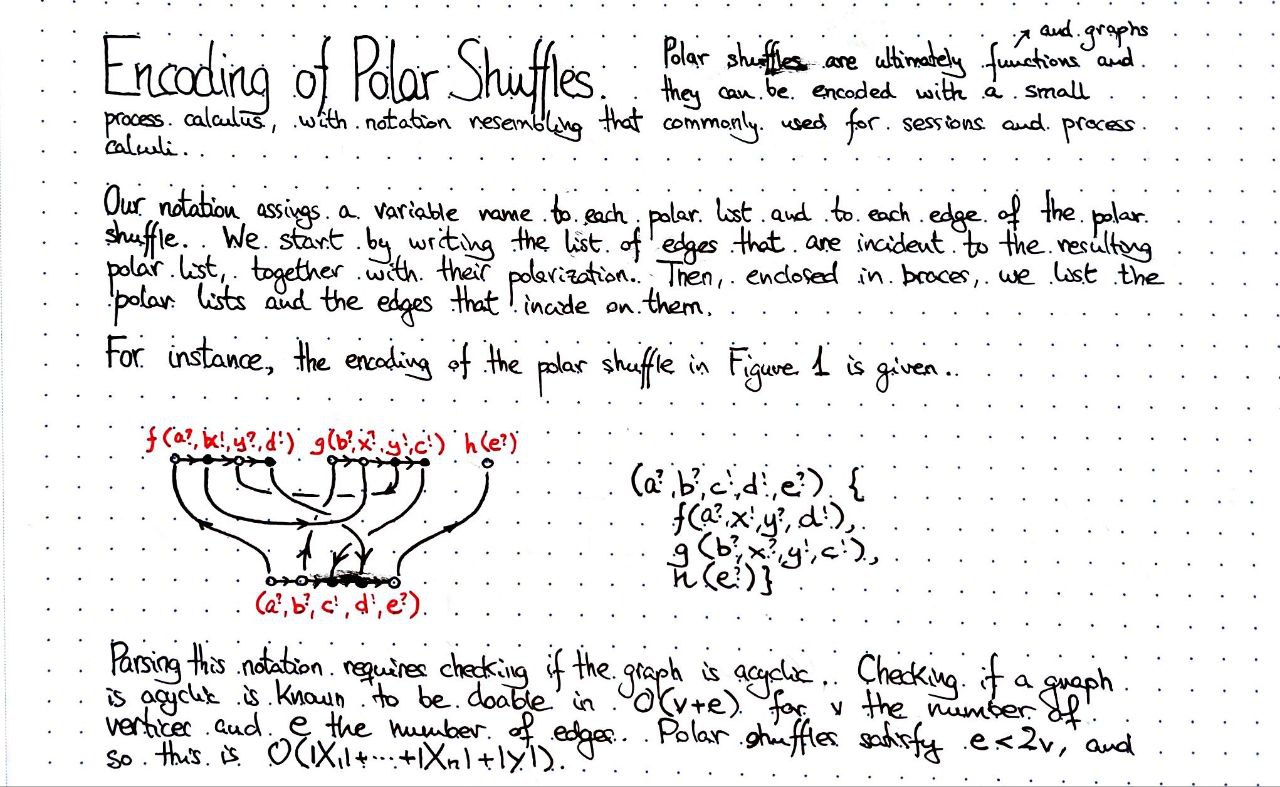 Encoding of Polar Shuffles.
and graphs
Polar shuffles are ultimately functions and
they can be encoded with a small
process calculus, with notation resembling that commonly used for sessions and process
calculi.
Our notation assings a variable name to each polar list and to each edge of the polar
shuffle. We start by writing the list of edges that are incident to the resulting
polar list, together with their polarization. Then, enclosed in braces, we list the
polar lists and the edges that incide on them.
For instance, the encoding of the polar shuffle in Figure 1 is given..
f(a?, x!, y?, d!) g(b?, x?, y!, c!) h(e?)
(a?, b?, c!, d!, e?)
(a?, b?, c!, d!, e?) {
f(a?, x!, y?, d!),
g(b?, x?, y!, c!),
h(e?)}
Parsing this notation requires checking if the graph is acyclic. Checking if a graph
is acyclic is known to be doable in O(v+e) for v the number of
vertices and e the number of edges. Polar shuffles satisfy e<2v, and
so this is O(|X₁|+···+|Xₙ|+|Y|).